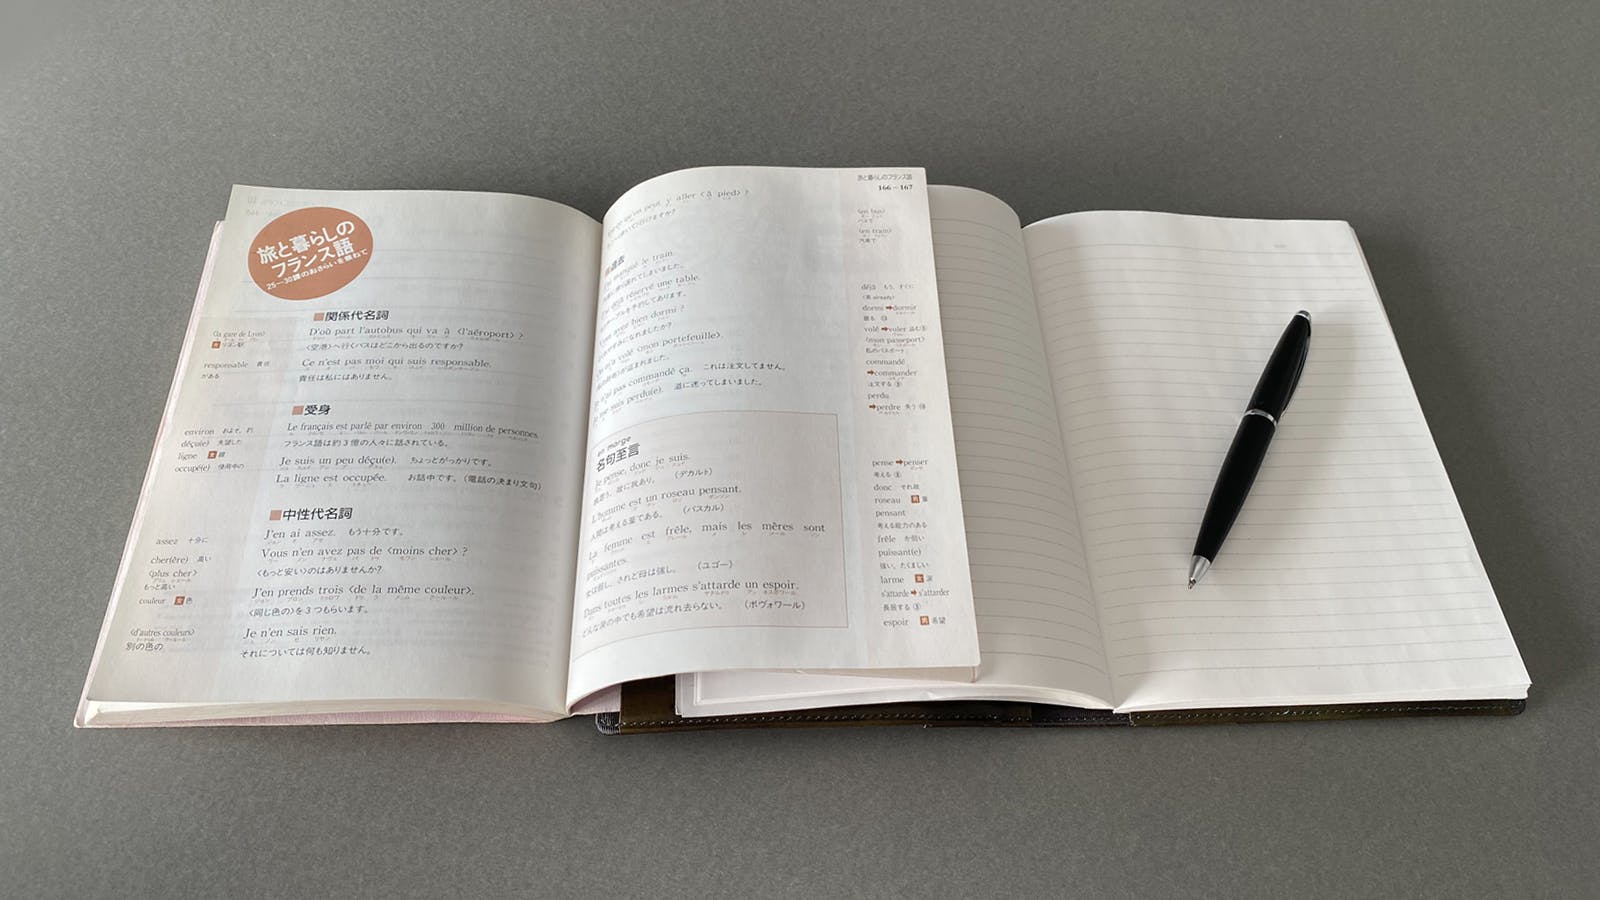 旅と暮らしの
フランス語
25―30課のおさらいを兼ねて
■関係代名詞
〈la gare de Lyon〉
女 リヨン駅
D'où part l'autobus qui va à 〈l'aéroport〉 ?
〈空港〉へ行くバスはどこから出るのですか?
responsable 責任
がある
Ce n'est pas moi qui suis responsable.
責任は私にはありません。
■受身
environ およそ、約
Le français est parlé par environ 300 million de personnes.
フランス語は約3億の人々に話されている。
déçu(e) 失望した
Je suis un peu déçu(e). ちょっとがっかりです。
ligne 女 線
occupé(e) 使用中の
La ligne est occupée. お話中です。(電話の決まり文句)
■中性代名詞
assez 十分に
J'en ai assez. もう十分です。
cher(ère) 高い
Vous n'en avez pas de 〈moins cher〉 ?
〈もっと安い〉のはありませんか?
〈plus cher〉
もっと高い
couleur 女 色
J'en prends trois 〈de la même couleur〉.
〈同じ色の〉を3つもらいます。
〈d'autres couleurs〉
別の色の
Je n'en sais rien.
それについては何も知りません。
旅と暮らしのフランス語
166－167
qu'on peut y aller 〈à pied〉 ?
行けますか?
〈en bus〉
バスで
〈en train〉
汽車で
■過去
manqué le train.
乗り遅れてしまいました。
déjà réservé une table.
テーブルを予約してあります。
avez bien dormi ?
おやすみになれましたか?
m'a volé 〈mon portefeuille〉.
が盗まれました。
n'ai pas commandé ça. これは注文してません。
Je me suis perdu(e). 道に迷ってしまいました。
déjà もう、すでに
〈英 already〉
dormi ➡dormir
眠る
volé ➡voler 盗む
〈mon passeport〉
私のパスポート
commandé
➡commander
注文する
perdu
➡perdre 失う
en marge
名句至言
Je pense, donc je suis.
我思う、故に我あり。 (デカルト)
L'homme est un roseau pensant.
人間は考える葦である。 (パスカル)
La femme est frêle, mais les mères sont
puissantes.
女は弱し、されど母は強し。 (ユゴー)
Dans toutes les larmes s'attarde un espoir.
どんな涙の中でも希望は流れ去らない。 (ボヴォワール)
pense ➡penser
考える
donc それ故
roseau 男 葦
pensant
考える能力のある
frêle か弱い
puissant(e)
強い、たくましい
larme 女 涙
s'attarde ➡s'attarder
長居する
espoir 男 希望